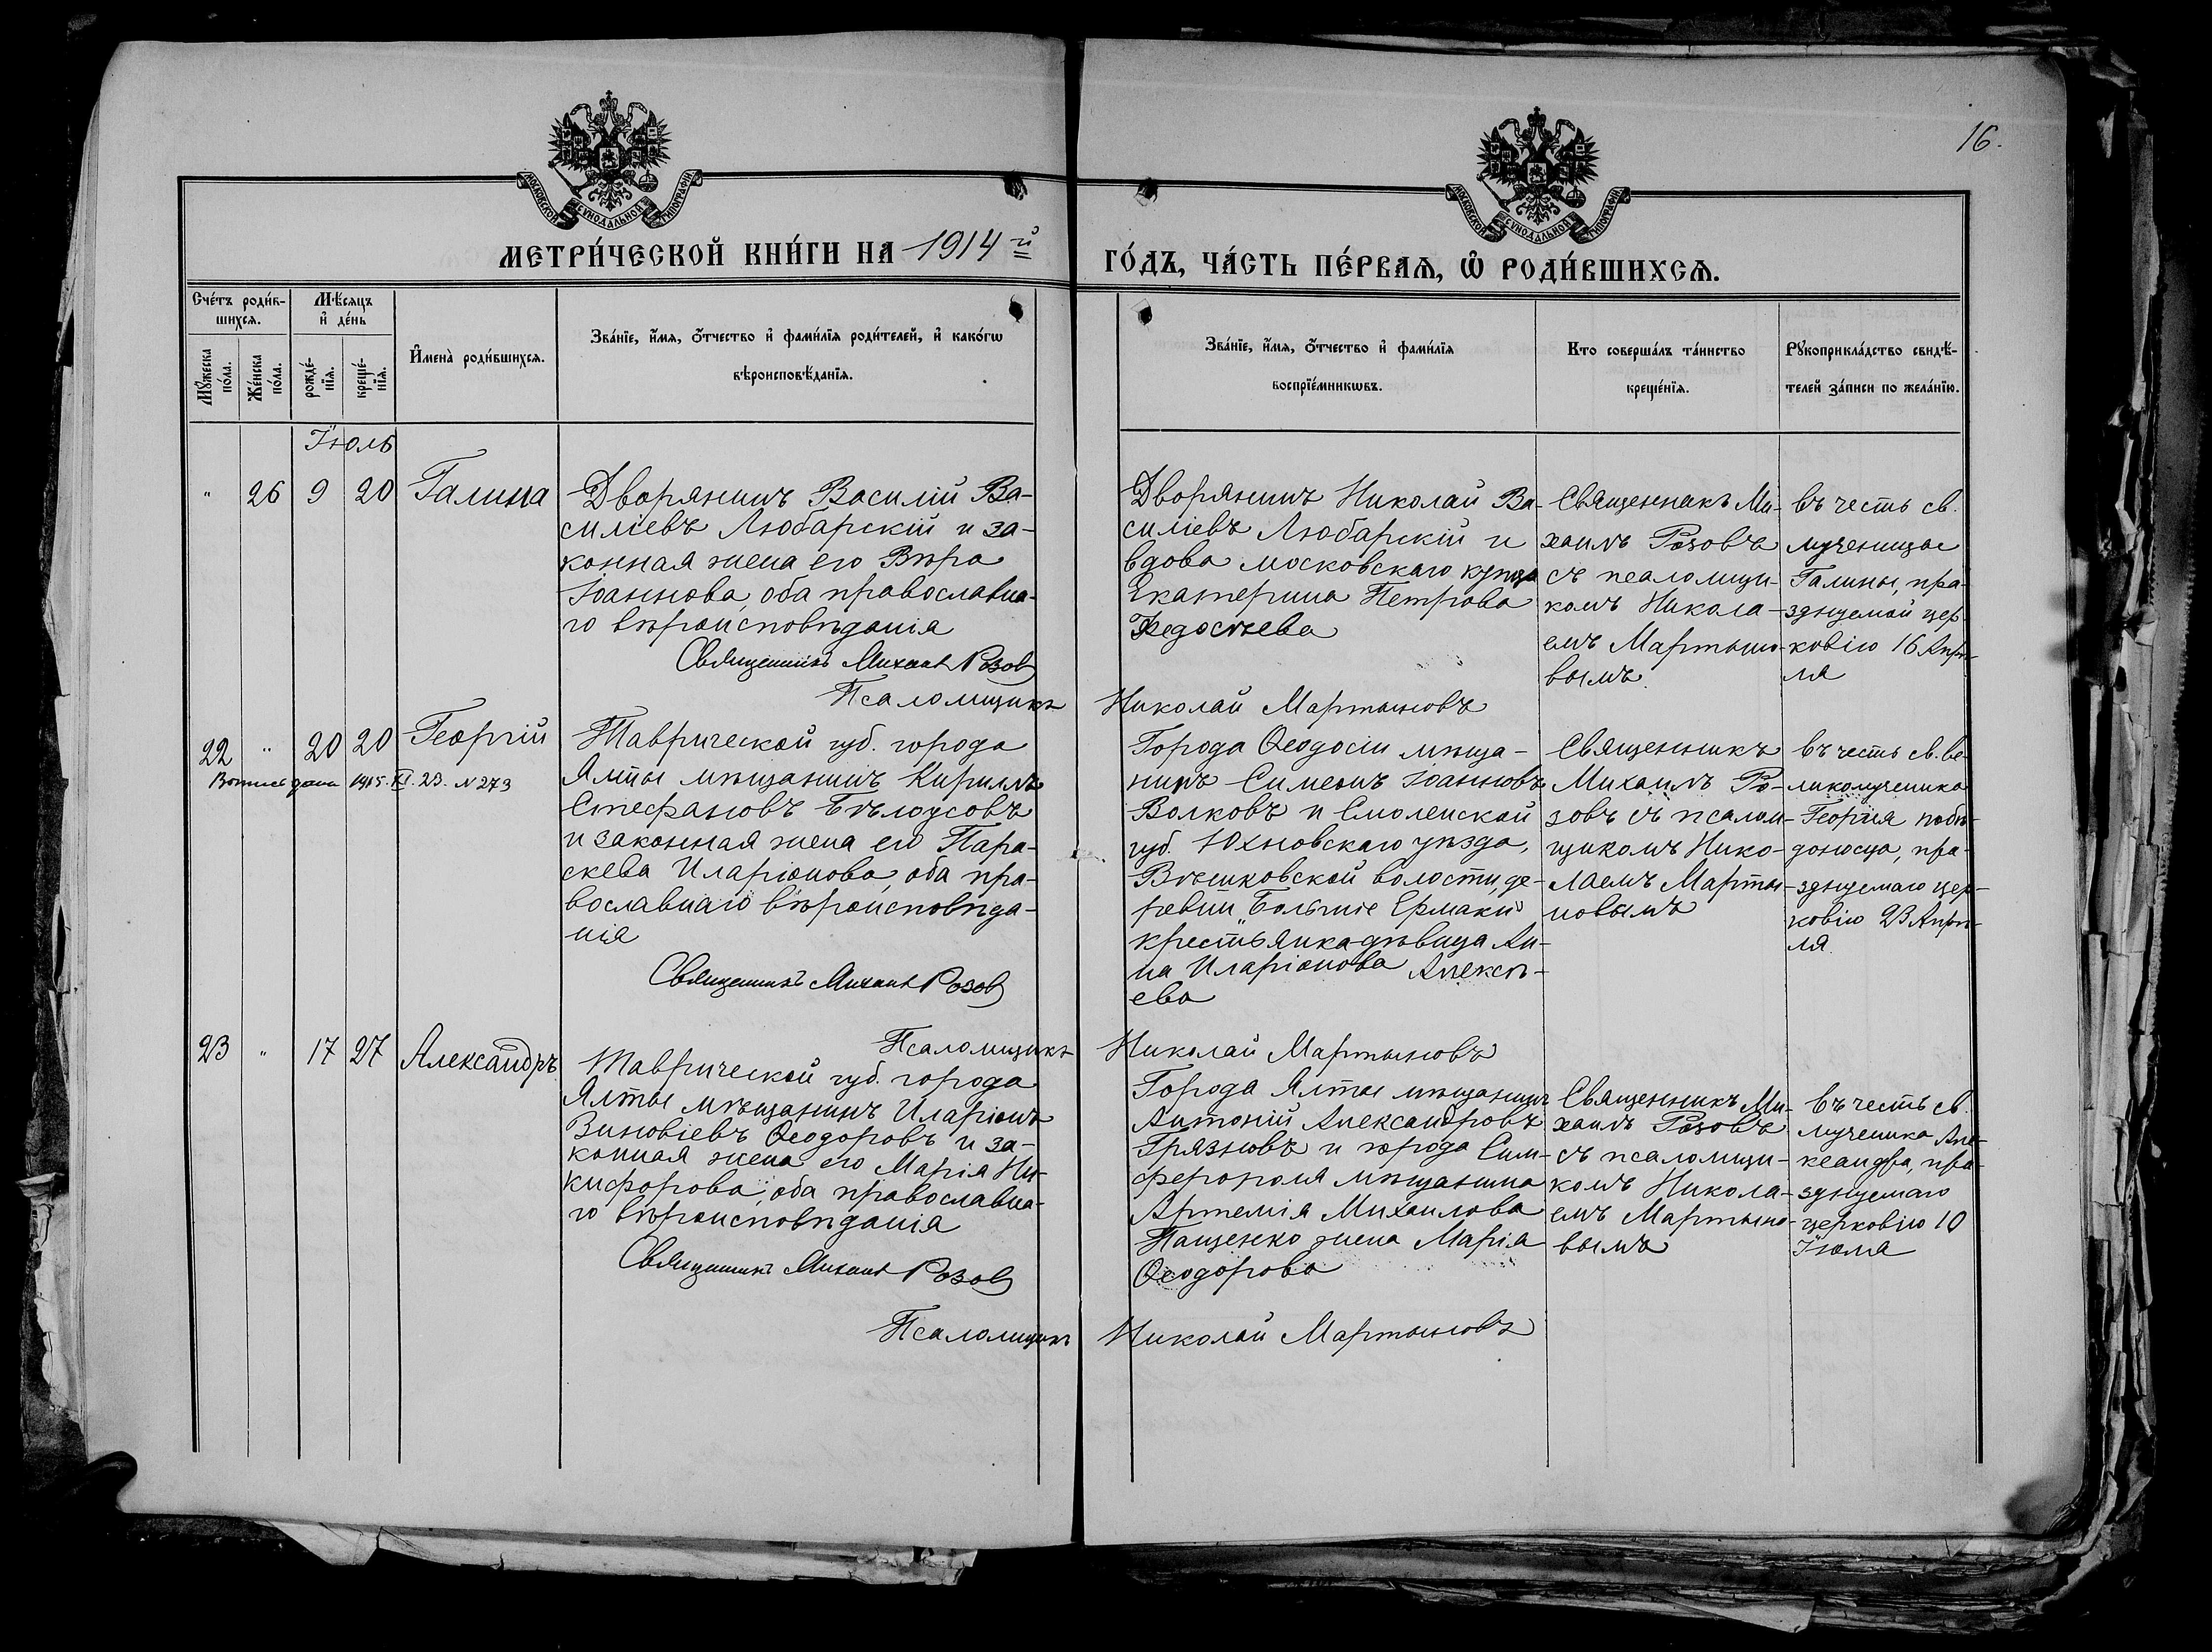 16.
МОСКОВСКОЙ СѴНОДАЛЬНОЙ ТИПОГРАФІИ
МОСКОВСКОЙ СѴНОДАЛЬНОЙ ТИПОГРАФІИ
МЕТРИ́ЧЕСКОЙ КНИ́ГИ НА 1914 й
ГО́ДЪ, ЧА́СТЬ ПЕ́РВАѦ, Ѡ РОДИ́ВШИХСѦ.
Сче́тъ роди́в-
шихсѧ.
Мѣ́сѧцъ
и҆ де́нь
Мꙋ́жеска
по́ла.
Же́нска
по́ла.
рожде́-
нїѧ.
креще́-
нїѧ.
И҆мена̀ роди́вшихсѧ.
Зва́нїе, и҆́мѧ, ѻ҆́тчество и҆ фами́лїѧ роди́телей, и҆ како́гѡ
вѣроисповѣ́данїѧ.
Зва́нїе, и҆́мѧ, ѻ҆́тчество и҆ фами́лїѧ
воспрїе́мникѡвъ.
Кто соверша́лъ та́инство
креще́нїѧ.
Рꙋкоприкла́дство свидѣ́-
телей за́писи по жела́нїю.
Іюль
" 26 9 20 Галина
Дворянинъ Василій Ва-
силіевъ Любарскій и за-
конная жена его Вѣра
Іоаннова, оба православна-
го вѣроисповѣданія
Священникъ Михаилъ Розовъ
Псаломщикъ Николай Мартыновъ
Дворянинъ Николай Ва-
силіевъ Любарскій и
вдова московскаго купца
Екатерина Петрова
Федосѣева
Священникъ Ми-
хаилъ Розовъ
съ псаломщи-
комъ Никола-
емъ Мартыно-
вымъ
въ честь св.
мученицы
Галины, пра-
зднуемой цер-
ковію 16 Апрѣ-
ля
22 " 20 20 Георгій
Выпись дана 1915. XI. 23. N 273
Таврической губ. города
Ялты мѣщанинъ Кириллъ
Стефановъ Бѣлоусовъ
и законная жена его Пара-
скева Иларіонова, оба пра-
вославнаго вѣроисповѣда-
нія
Священникъ Михаилъ Розовъ
Псаломщикъ Николай Мартыновъ
Города Ѳеодосіи мѣща-
нинъ Симеонъ Іоанновъ
Волковъ и Смоленской
губ. Юхновскаго уѣзда,
Вѣшковской волости, де-
ревни „Большіе Ермаки"
крестьянка-дѣвица Ан-
на Иларіонова Алексѣ-
ева
Священникъ
Михаилъ Ро-
зовъ съ псалом-
щикомъ Нико-
лаемъ Марты-
новымъ
въ честь св. ве-
ликомученика
Георгія побѣ-
доносца, пра-
зднуемаго цер-
ковію 23 Апрѣ-
ля
23 " 17 27 Александръ
Таврической губ. города
Ялты мѣщанинъ Иларіонъ
Зиновіевъ Ѳеодоровъ и за-
конная жена его Марія Ни-
кифорова, оба православна-
го вѣроисповѣданія
Священникъ Михаилъ Розовъ
Псаломщикъ Николай Мартыновъ
Города Ялты мѣщанинъ
Антоній Александровъ
Грязновъ и города Сим-
ферополя мѣщанина
Артемія Михаилова
Пащенко жена Марія
Ѳеодорова
Священникъ Ми-
хаилъ Розовъ
съ псаломщи-
комъ Никола-
емъ Мартыно-
вымъ
въ честь св.
мученика Але-
ксандра, пра-
зднуемаго
церковію 10
Іюля